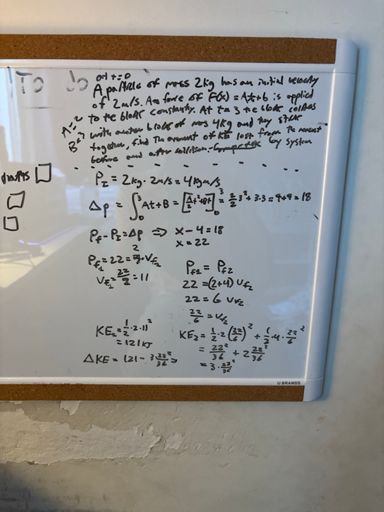 at t=0
A particle of mass 2kg has an initial velocity
of 2m/s. A force of F(x) = At+b is applied
A=2 to the block constantly. At t=3 the block collides
B=3 with another block of mass 4kg and they stick
together, find the amount of KE lost from the moment
before and after collision by system
To Do
P₂ = 2kg · 2m/s = 4kgm/s
Δp = ∫₀³ At+B = [A/2 t² + Bt]₀³ = 2/2 3² + 3·3 = 9+9 = 18
Pf - P₂ = Δp ⇒ x - 4 = 18
x = 22
Pf₂ = 22 = 2 · Vf₂
Vf₂ = 22/2 = 11
Pf₁ = Pf₂
22 = (2+4) Vf₂
22 = 6 Vf₂
22/6 = Vf₂
KE₂ = 1/2 · 2 · 11²
= 121 kJ
ΔKE = 121 - 3 22²/36
KE₂ = 1/2 · 2 (22/6)² + 1/2 · 4 · 22²/6
= 22²/36 + 2 22²/36
= 3 · 22²/36
U BRANDS